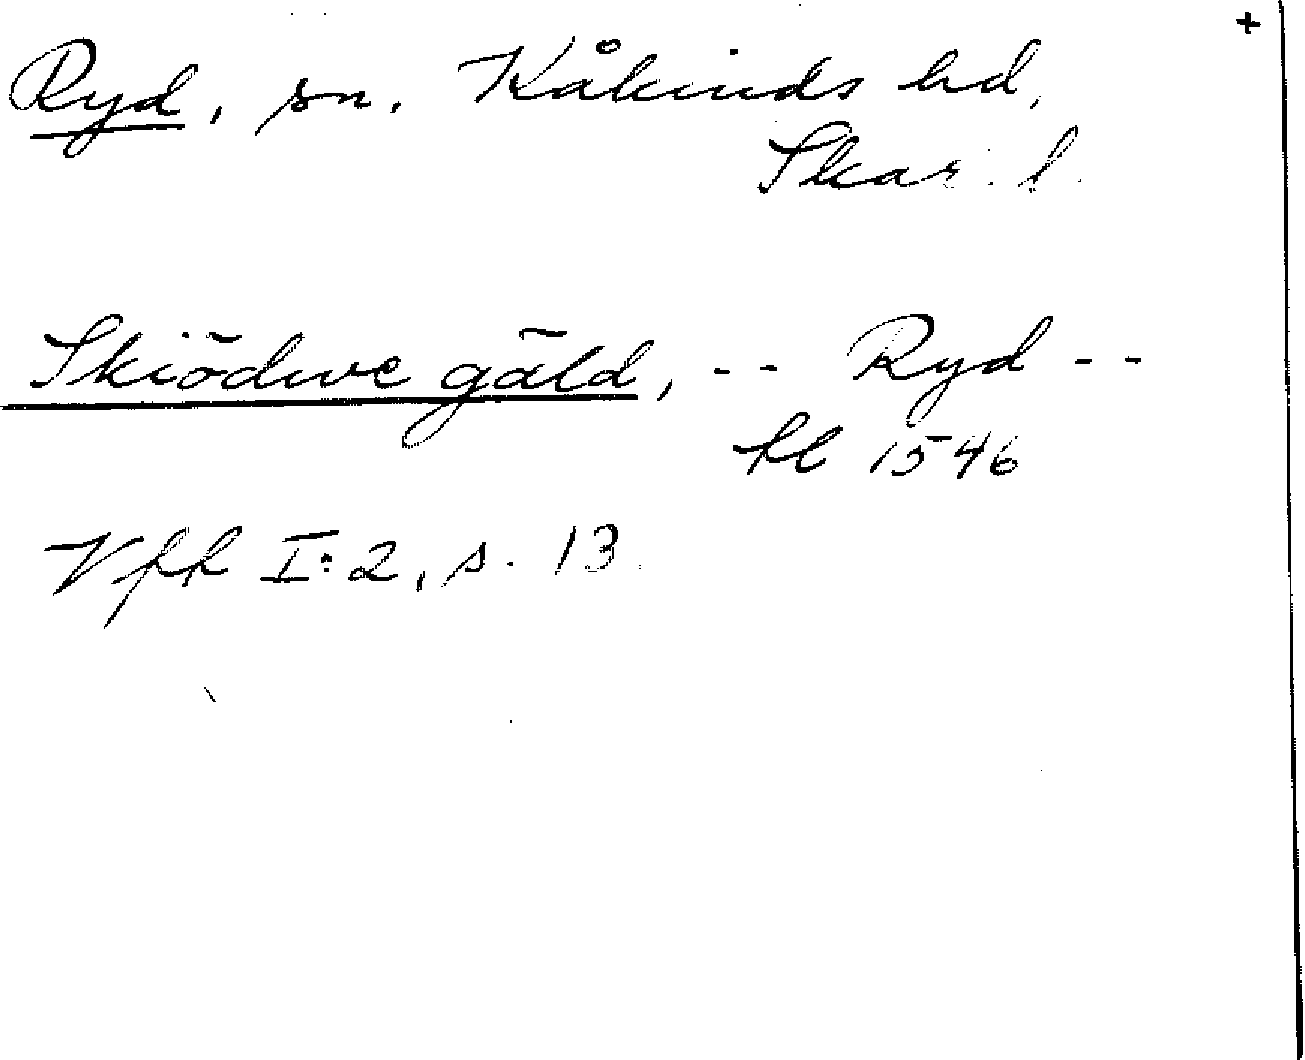 +
Ryd, sn. Kåkinds hd,
Skar. l.
Skiödwe gäld, -- Ryd --
fl 1546
Vfk I:2, s. 13.